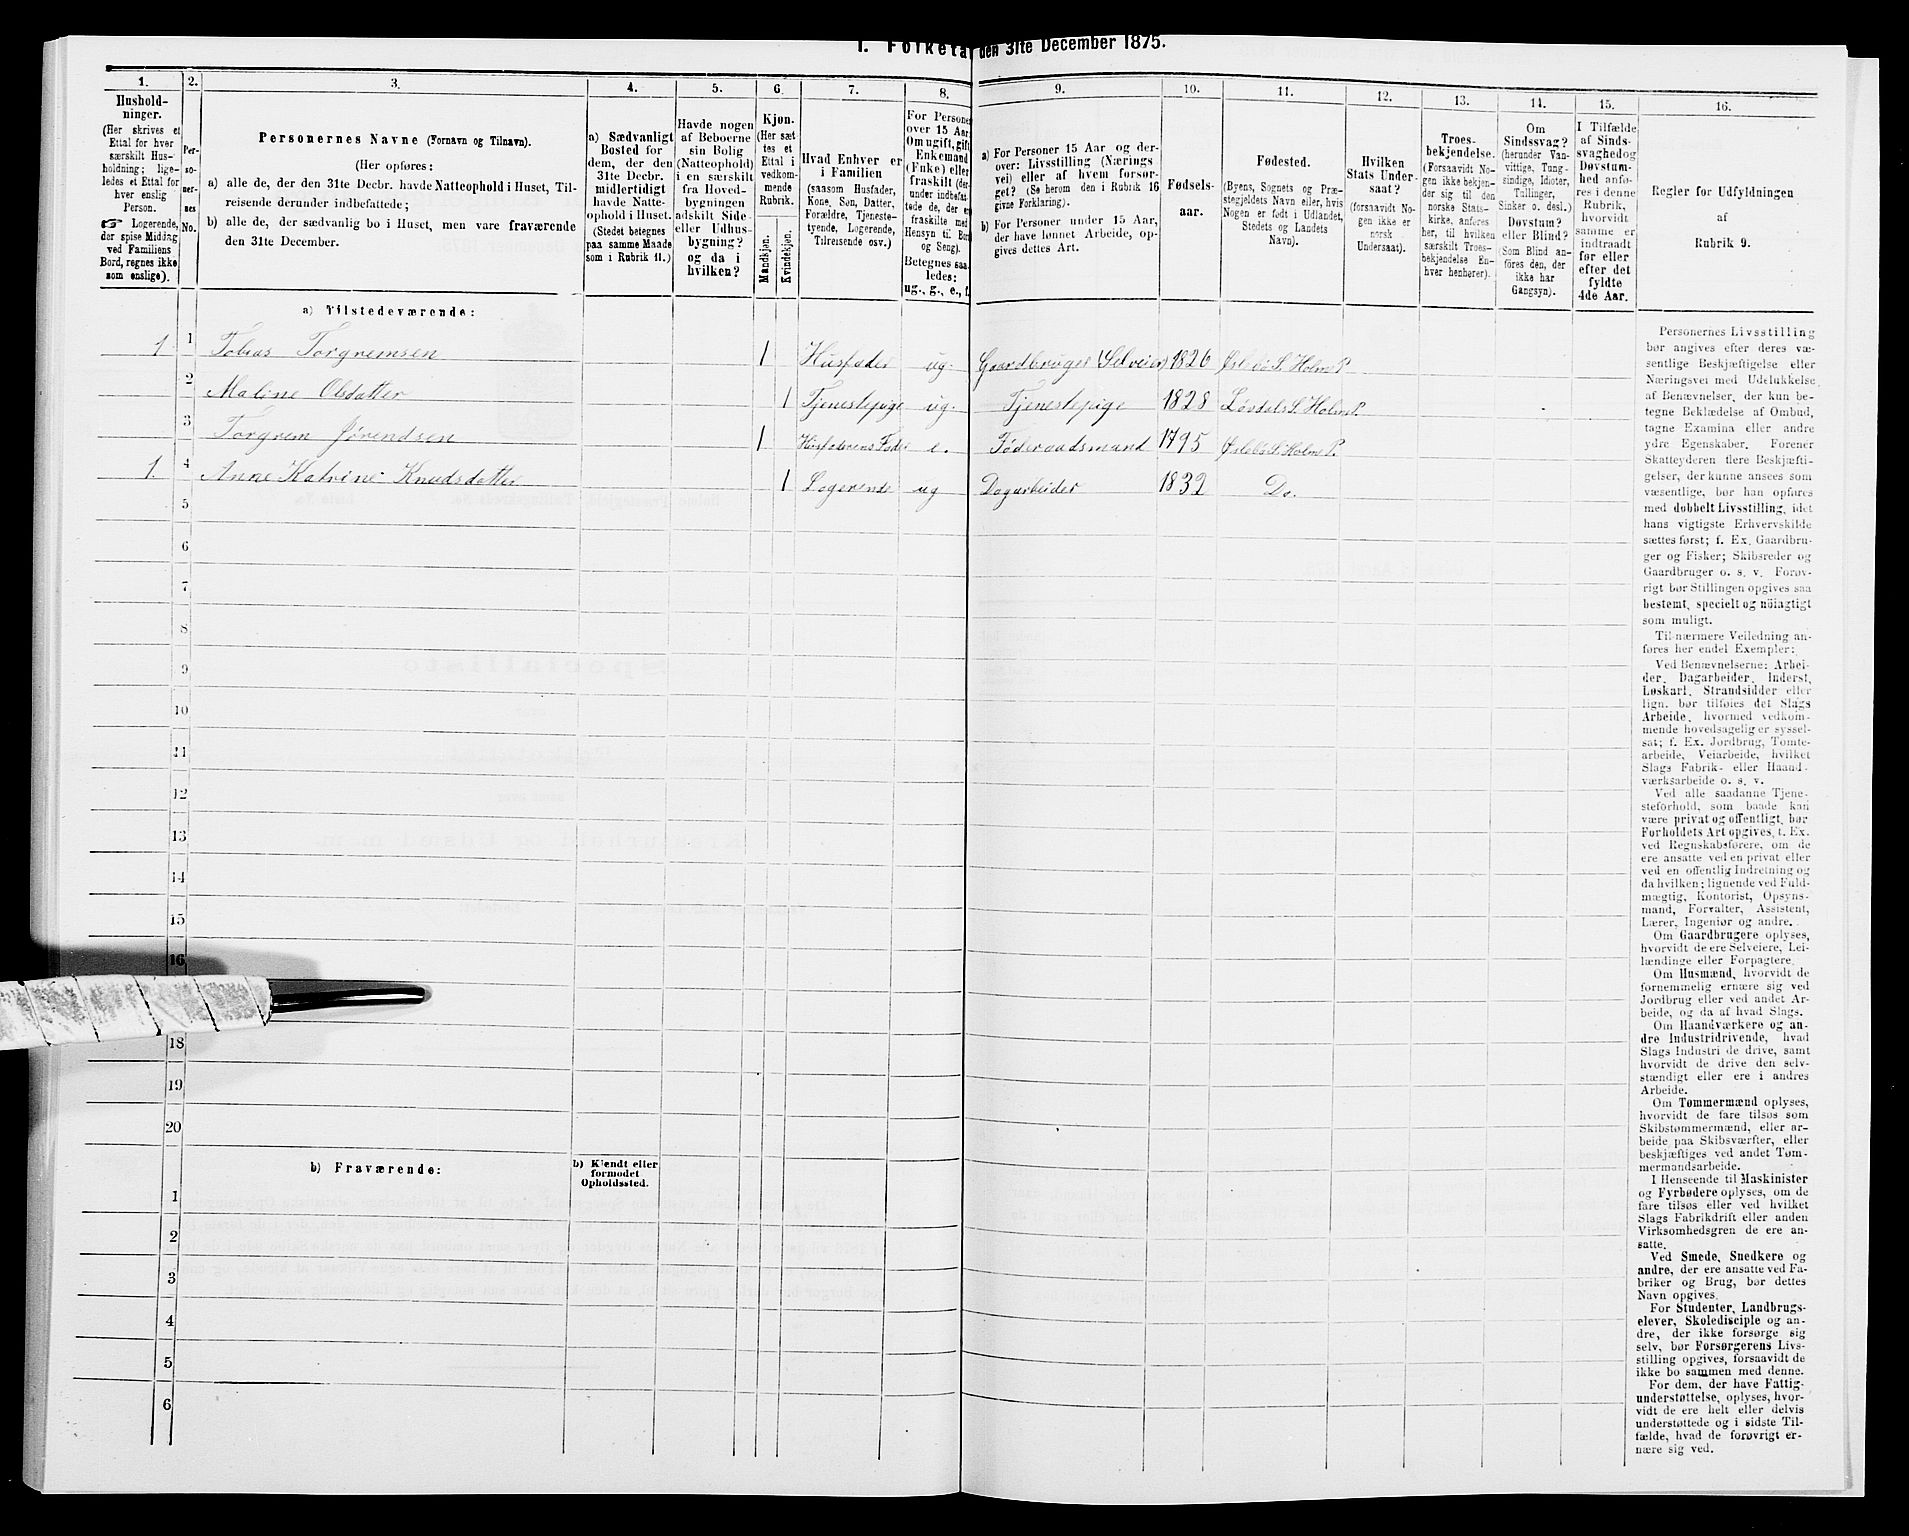 I. Folketæ den 31te December 1875.
1. 2. 3. 4. 5. 6. 7. 8. 9. 10. 11. 12. 13. 14. 15. 16.
Hushold-
ninger.
(Her skrives et
Ettal for hver
særskilt Hus-
holdning; lige-
ledes et Ettal for
hver enslig
Person.
☞ Logerende,
der spise Middag
ved Familiens
Bord, regnes ikke
som enslige).
Per-
so-
ner-
nes
No.
Personernes Navne (Fornavn og Tilnavn).
(Her opføres:
a) alle de, der den 31te Decbr. havde Natteophold i Huset, Til-
reisende derunder indbefattede;
b) alle de, der sædvanlig bo i Huset, men vare fraværende
den 31te December.
a) Sædvanligt
Bosted for
dem, der den
31te Decbr.
midlertidigt
havde Natte-
ophold i Huset.
(Stedet betegnes
paa samme Maade
som i Rubrik 11.)
Havde nogen
af Beboerne
sin Bolig
(Natteophold)
i en særskilt
fra Hoved-
bygningen
adskilt Side-
eller Udhus-
bygning?
og da i
hvilken?
Kjøn.
(Her sæt
tes et
Ettal i
vedkom-
mende
Rubrik.
Mandkjøn.
Kvindekjøn.
Hvad Enhver er
i Familien
(saasom Husfader,
Kone, Søn, Datter,
Forældre, Tjeneste-
tyende, Logerende,
Tilreisende osv.)
For Persone
over 15 Aar
Om ugift, gift
Enkemand
(Enke) eller
fraskilt (der-
under indbefat-
tede de, der er
fraskilte med
Hensyn til Bord
og Seng).
Betegnes saa
ledes:
ug., g., e., f.
a) For Personer 15 Aar og der-
over: Livsstilling (Nærings
vei) eller af hvem forsør-
get? (Se herom den i Rubrik 16
givne Forklaring).
b) For Personer under 15 Aar,
der have lønnet Arbeide, op-
gives dettes Art.
Fødsels-
aar.
Fødested.
(Byens, Sognets og Præ-
stegjeldets Navn eller, hvis
Nogen er født i Udlandet,
Stedets og Landets
Navn).
Hvilken
Stats Under-
saat?
(forsaavidt No-
gen ikke er
norsk
Undersaat).
Troes-
bekjendelse.
(Forsaavidt No-
gen ikke bekjen-
der sig til den
norske Stats-
kirke, anføres
her, til hvilken
særskilt Troes-
bekjendelse En-
hver henhører).
Om
Sindssvag?
(herunder Van-
vittige, Tung-
sindige, Idioter,
Tullinger,
Sinker o. desl.)
Døvstum?
eller Blind?
(Som Blind an-
føres den, der
ikke har
Gangsyn).
I Tilfælde
af Sinds-
svaghed og
Døvstum-
hed anfø-
res i denne
Rubrik,
hvorvidt
samme er
indtraadt
før eller
efter det
fyldte
4de Aar.
Regler for Udfyldningen
af
Rubrik 9.
a) Tilstedeværende:
1 1 Tobias Torgremsen 1 Husfader ug. Gaardbruger (Selveier) 1826 Øslebø S. Holm P.
2 Maline Olsdatter 1 Tjenestepige ug. Tjenestepige 1828 Løvdals S. Holm P.
3 Torgrem Jørendsen 1 Husfaderens Fader e. Føderaadsmand 1795 Øslebø S. Holm P.
1. 4 Anne Katrine Knudsdatter 1 Logerende ug Dagarbeider 1832 Do.
5
6
7
8
9
10
11
12
13
14
15
16
18
19
20
b) Fraværende:
b) Kjendt eller
formodet
Opholdssted.
1
2
3
4
5
6
Personernes Livsstilling
bør angives efter deres væ-
sentlige Beskjæftigelse eller
Næringsvei med Udelukkelse
af Benævnelser, der kun be-
tegne Beklædelse af Ombud,
tagne Examina eller andre
ydre Egenskaber. Forener
Skatteyderen flere Beskjæfti-
gelser, der kunne ansees som
væsentlige, bør han opføres
med dobbelt Livsstilling, idet
hans vigtigste Erhvervskilde
sættes først; f. Ex. Gaardbru-
ger og Fisker; Skibsreder og
Gaardbruger o. s. v. Forøv-
rigt bør Stillingen opgives saa
bestemt, specielt og nöiagtigt
som muligt.
Til nærmere Veiledning an-
føres her endel Exempler:
Ved Benævnelserne: Arbei-
der, Dagarbeider, Inderst,
Løskarl, Strandsidder eller
lign. bør tilføies det Slags
Arbeide, hvormed vedkom-
mende hovedsagelig er syssel-
sat; f. Ex. Jordbrug, Tomte-
arbeide, Veiarbeide, hvilket
Slags Fabrik- eller Haand-
værksarbeide o. s. v.
Ved alle saadanne Tjene-
steforhold, som baade kan
være privat og offentligt, bør
Forholdets Art opgives, t. Ex.
ved Regnskabsførere, om de
ere ansatte ved en privat eller
ved en offentlig Indretning og
da hvilken; lignende ved Fuld-
mægtig, Kontorist, Opsyns-
mand, Forvalter, Assistent,
Lærer, Ingeniør og andre.
Om Gaardbrugere oplyses,
hvorvidt de ere Selveiere, Lei-
lændinge eller Forpagtere.
Om Husmænd, hvorvidt de
fornemmelig ernære sig ved
Jordbrug eller ved andet Ar-
beide, og da af hvad Slags.
Om Haandværkere og an-
dre Industridrivende, hvad
Slags Industri de drive, samt
hvorvidt de drive den selv-
stændigt eller ere i andres
Arbeide.
Om Tømmermænd oplyses,
hvorvidt de fare tilsøs som
Skibstømmermænd, eller ar-
beide paa Skibsværfter, eller
beskjæftiges ved andet Tøm-
mermandsarbeide.
I Henseende til Maskinister
og Fyrbødere oplyses, om de
fare tilsøs eller ved hvilket
Slags Fabrikdrift eller anden
Virksomhedsgren de ere an-
satte.
Ved Smede, Snedkere og
andre, der ere ansatte ved Fa-
briker og Brug, bør dettes
Navn opgives.
For Studenter, Landbrugs-
elever, Skoledisciple og an-
dre, der ikke forsørge sig
selv, bør Forsørgerens Livs-
stilling opgives, forsaavidt de
ikke bo sammen med denne.
For dem, der have Fattig-
understøttelse, oplyses, hvor-
vidt de ere helt eller delvis
understøttede og i sidste Til-
fælde, hvad de forøvrigt er-
nære sig ved.